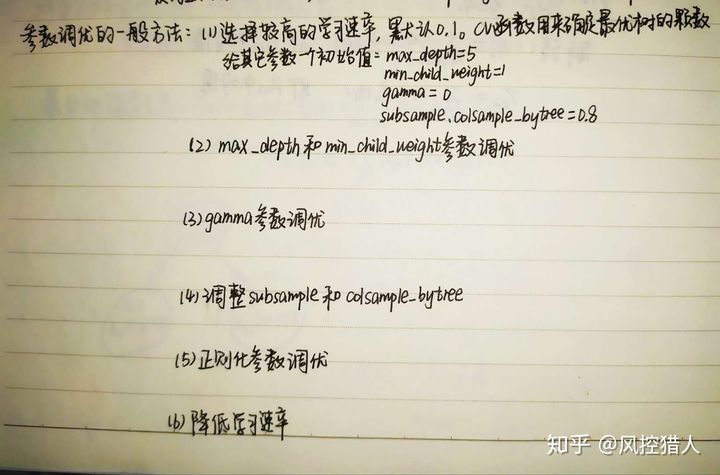 参数调优的一般方法：(1)选择较高的学习速率，默认0.1。CV函数用来确定最优树的颗数
给其它参数一个初始值：max_depth=5
min_child_weight=1
gamma=0
subsample、colsample_bytree=0.8
(2)max_depth和min_child_weight参数调优
(3)gamma参数调优
(4)调整subsample和colsample_bytree
(5)正则化参数调优
(6)降低学习速率
知乎 @风控猎人